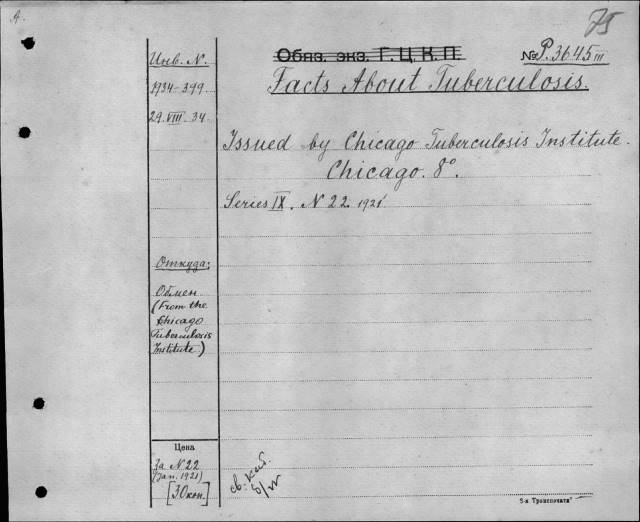 A.
75
Инв. N.
Обяз. экз. Г.Ц.К.П.
№ P.3645 III
Facts About Tuberculosis.
1934-399
29.VIII.34
Issued by Chicago Tuberculosis Institute.
Chicago. 8°.
Series IX. N 22. 1921
Откуда:
Обмен
(From the
Chicago
Tuberculosis
Institute)
Цена
За N 22
(Jan. 1921)
[30 коп.]
св. каб.
б/н
5-я Транспечати"